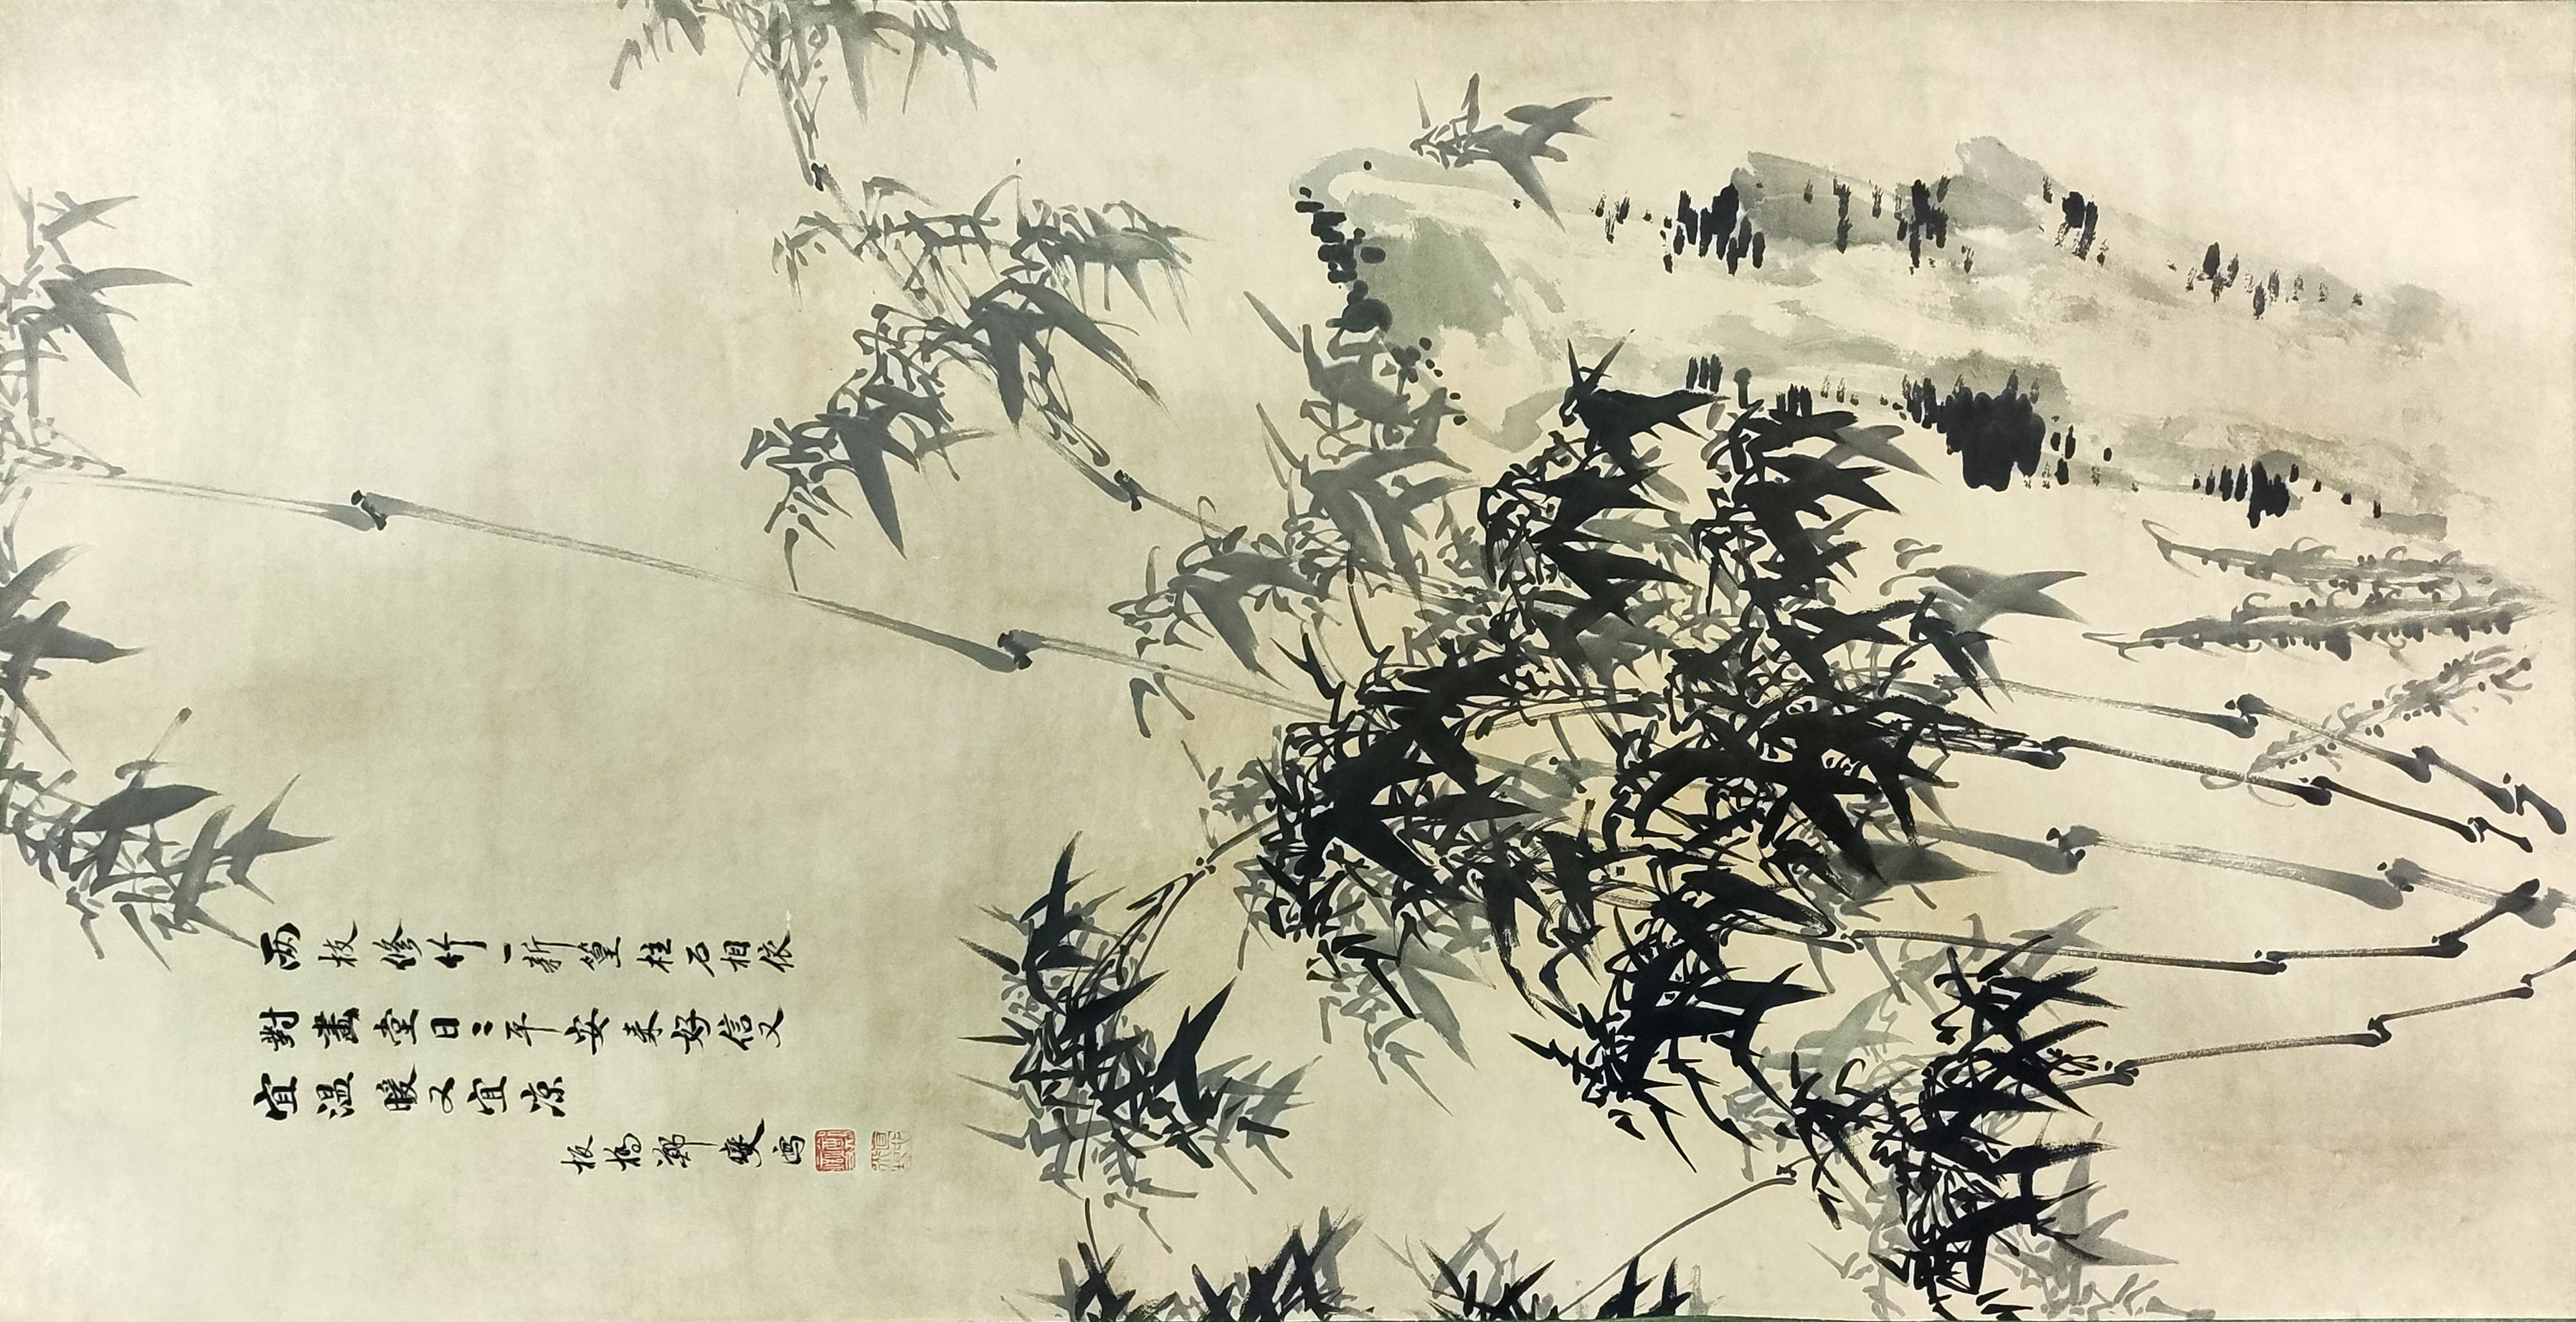 两枝修竹一新篁柱石相依
對畫堂日〻平安来好信又
宜温暖又宜凉
板橋鄭燮寫